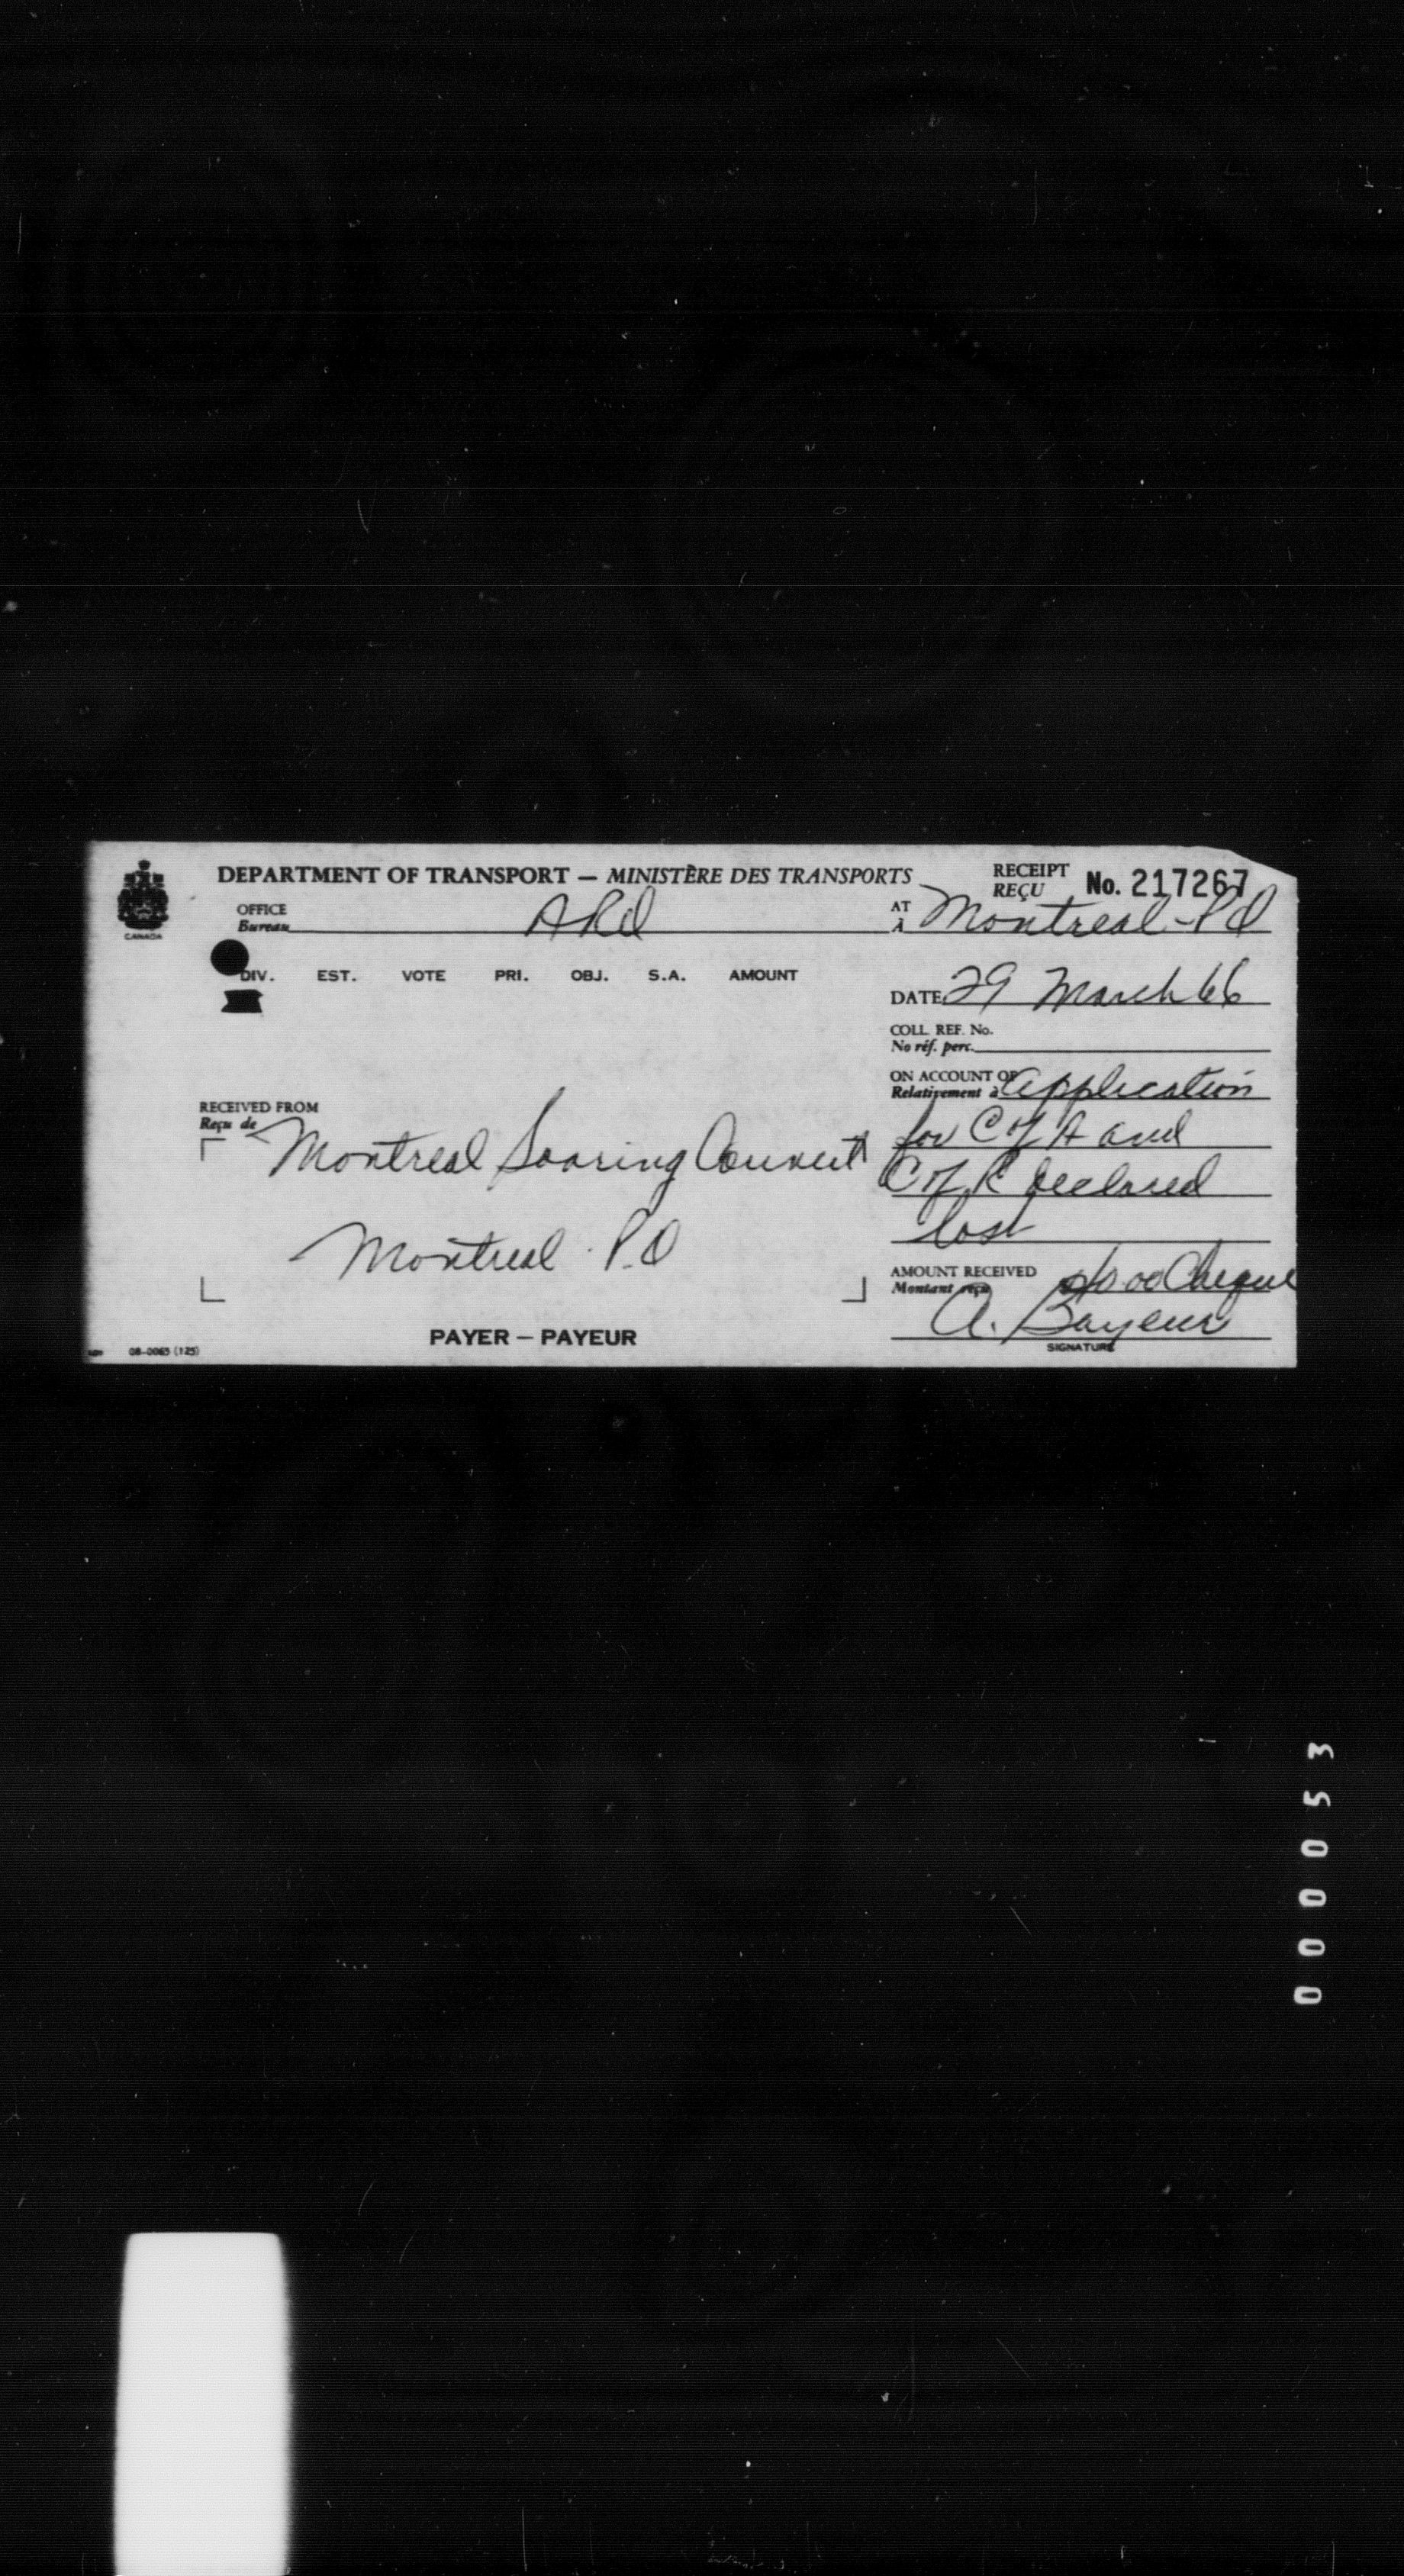 DEPARTMENT OF TRANSPORT — MINISTÈRE DES TRANSPORTS
RECEIPT
REÇU No. 217267
CANADA
OFFICE
Bureau
AT
À Montreal - PQ
DIV. EST. VOTE PRI. OBJ. S.A. AMOUNT
DATE 29 March 66
COLL. REF. No.
No réf. perc.
ON ACCOUNT OF
Relativement à Application
for C of A and
C of R declared
lost
RECEIVED FROM
Reçu de
Montreal Soaring
Montreal P.Q
AMOUNT RECEIVED
Montant reçu Cheque
A. Bayeur
SIGNATURE
PAYER — PAYEUR
08-0065 (125)
000053